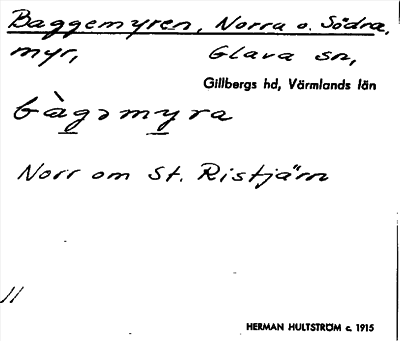 Baggemyren, Norra o. Södra,
myr, Glava sn,
Gillbergs hd, Värmlands län
bàgəmyra
Norr om St. Ristjärn
11
HERMAN HULTSTRÖM c. 1915